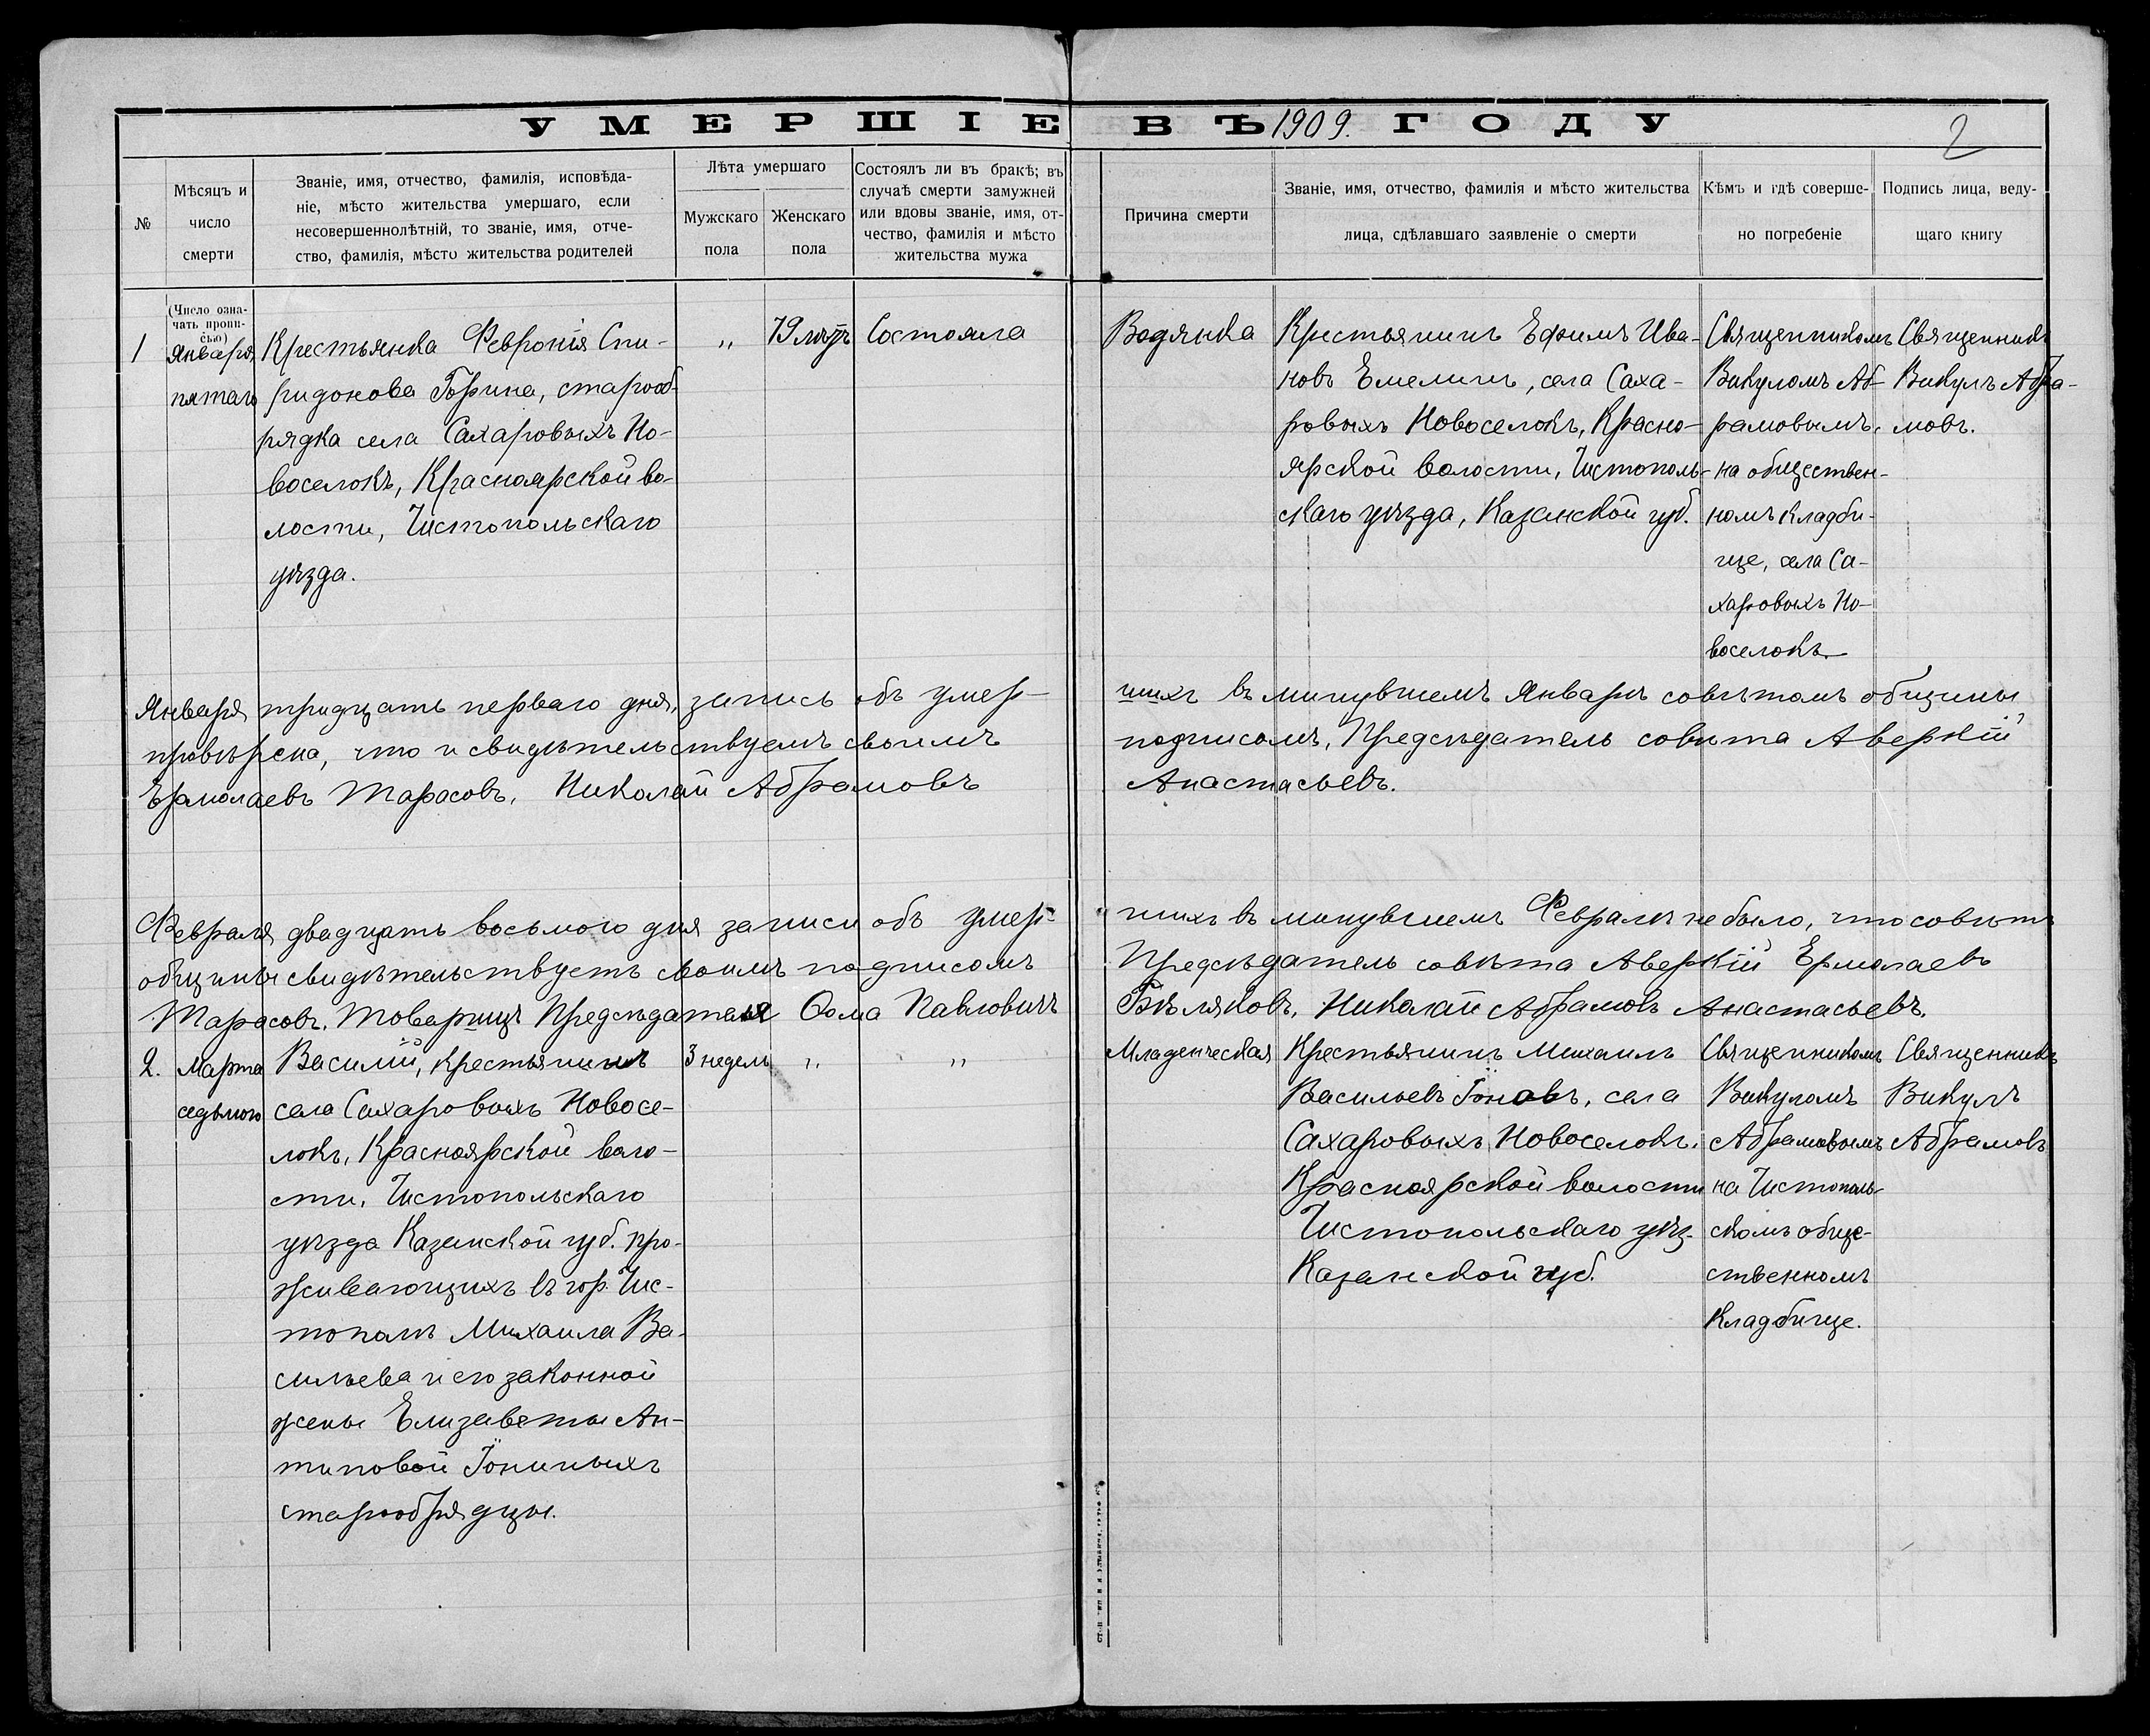 УМЕРШІЕ ВЪ 1909. ГОДУ
2
№
Мѣсяцъ и
число
смерти
Званіе, имя, отчество, фамилія, исповѣда-
ніе, мѣсто жительства умершаго, если
несовершеннолѣтній, то званіе, имя, отче-
ство, фамилія, мѣсто жительства родителей
Лѣта умершаго
Мужскаго
пола
Женскаго
пола
Состоялъ ли въ бракѣ; въ
случаѣ смерти замужней
или вдовы званіе, имя, от-
чество, фамилія и мѣсто
жительства мужа
Причина смерти
Званіе, имя, отчество, фамилія и мѣсто жительства
лица, сдѣлавшаго заявленіе о смерти
Кѣмъ и гдѣ соверше-
но погребеніе
Подпись лица, веду-
щаго книгу
(Число озна-
чать пропи-
сью)
1
Января
пятаго
Крестьянка Февронія Спи-
ридонова Бѣрина, старооб-
рядка села Сахаровыхъ Но-
воселокъ, Красноярской во-
лости, Чистопольскаго
уѣзда.
"
79 лѣтъ
Состояла
Водянка
Крестьянинъ Ефимъ Ива-
новъ Емелинъ, села Саха-
ровыхъ Новоселокъ, Красно-
ярской волости, Чистополь-
скаго уѣзда, Казанской губ.
Священникомъ
Викуломъ Аб-
рамовымъ,
на обществен-
номъ кладби-
ще, села Са-
харовыхъ Но-
воселокъ.
Священникъ
Викулъ Абра-
мовъ.
Января тридцать перваго дня, запись объ умер-
шихъ въ минувшемъ Январѣ совѣтомъ общины
провѣрена, что и свидѣтельствуемъ своимъ
подписомъ, Предсѣдатель совѣта Аверкій
Ермолаевъ Тарасовъ, Николай Абрамовъ
Анастасьевъ.
Февраля двадцать восьмого дня записи объ умер-
шихъ въ минувшемъ Февралѣ не было, что совѣтъ
общины свидѣтельствуетъ своимъ подписомъ
Предсѣдатель совѣта Аверкій Ермолаевъ
Тарасовъ. Товарищъ Предсѣдателя Ѳома Павловичъ
Бѣляковъ, Николай Абрамовъ Анастасьевъ.
2.
Марта
седьмого
Василій, крестьянинъ
села Сахаровыхъ Новосе-
локъ, Красноярской воло-
сти, Чистопольскаго
уѣзда Казанской губ. про-
живающихъ въ гор. Чис-
тополѣ Михаила Ва-
сильева и его законной
жены Елизаветы Ан-
типовой Іониныхъ
старообрядцы.
3 недель
"
"
Младенческая
Крестьянинъ Михаилъ
Васильевъ Іоновъ, села
Сахаровыхъ Новоселокъ,
Красноярской волости
Чистопольскаго уѣз.
Казанской губ.
Священникомъ
Викуломъ
Абрамовымъ
на Чистополь-
скомъ обще-
ственномъ
кладбище.
Священникъ
Викулъ
Абрамовъ